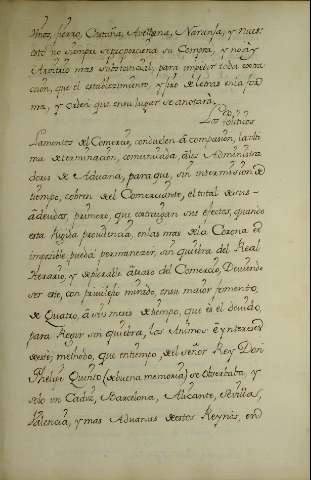 Vinos, fierro, Castaña, Avellana, Naranja, y nuez
esto no siempre se proporciona su Compra, y no ay
Arvitrio mas substancial, para impedir toda extra
ccion, que el establecimiento, y giro de letras en la for
ma, y orden que en su lugar se anotarà.
Los políticos
Lamentos del Comercio, conducen à compasion, la ulti
ma determinacion, comunicada, à los Administra
dores de Aduana, para que, sin intermision de
tiempo, cobren del Comerciante, el total de sus
adeudos, primero, que extraigan sus efectos, quando
esta Rigida providencia, en las mas de la Corona es
imposible pueda permanecer, sin quiebra del Real
Herario, y deplorable atraso del Comercio, Deviendo
ser este, con privilegio mirado, en su maior fomento,
de Quatro, à seis meses de tiempo, que es el devido,
para Regir sin quiebra, los Animos è Yntereses
de este; methodo, que en tiempo, del señor Rey Don
Phelipe Quinto (de buena memoria) se observaba, y
solo en Cadiz, Barcelona, Alicante, Sevilla,
Valencia, y mas Aduanas de estos Reynos, en